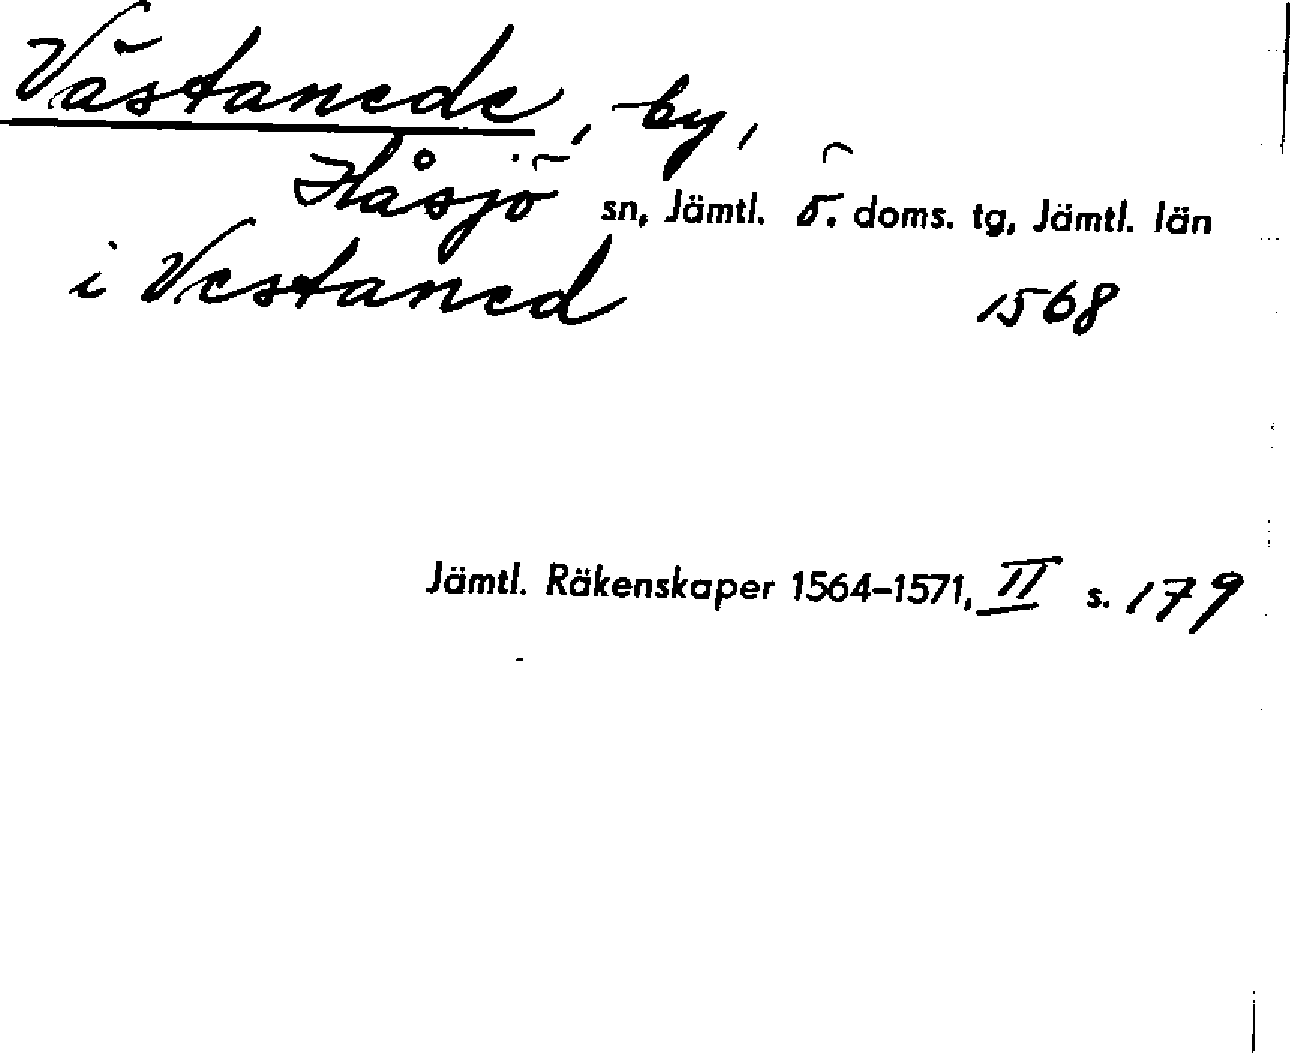 Västanede, by,
Håsjö sn, Jämtl. ö. doms. tg, Jämtl. län
i Vestaned 1568
Jämtl. Räkenskaper 1564–1571, II s. 179